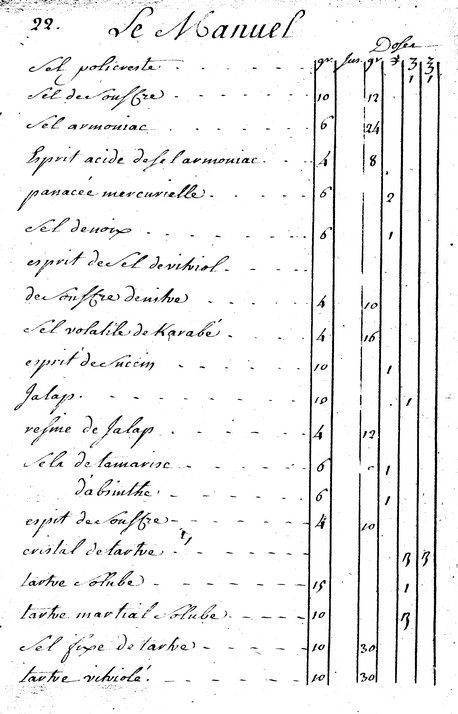 22. Le Manuel
Doses
gr. jus. gr. ʒ
Sel policreste 1 1
Sel de Souffre 10 12
Sel armoniac 6 24
Esprit acide de sel armoniac 4 8
panacée mercurielle 6 2
Sel de noix 6 1
esprit de Sel de vitriol
de Souffre de nitre 4 10
Sel volatile de Karabé 4 16
esprit de Succin 10 1
Jalap 10 1
resine de Jalap 4 12
Sels de tamarisc 6 1
d'absinthe 6 1
esprit de Souffre 4 10
cristal de tartre
tartre Soluble 15 1
tartre martial Soluble 10
Sel fixe de tartre 10 30
tartre vitriolé 10 30